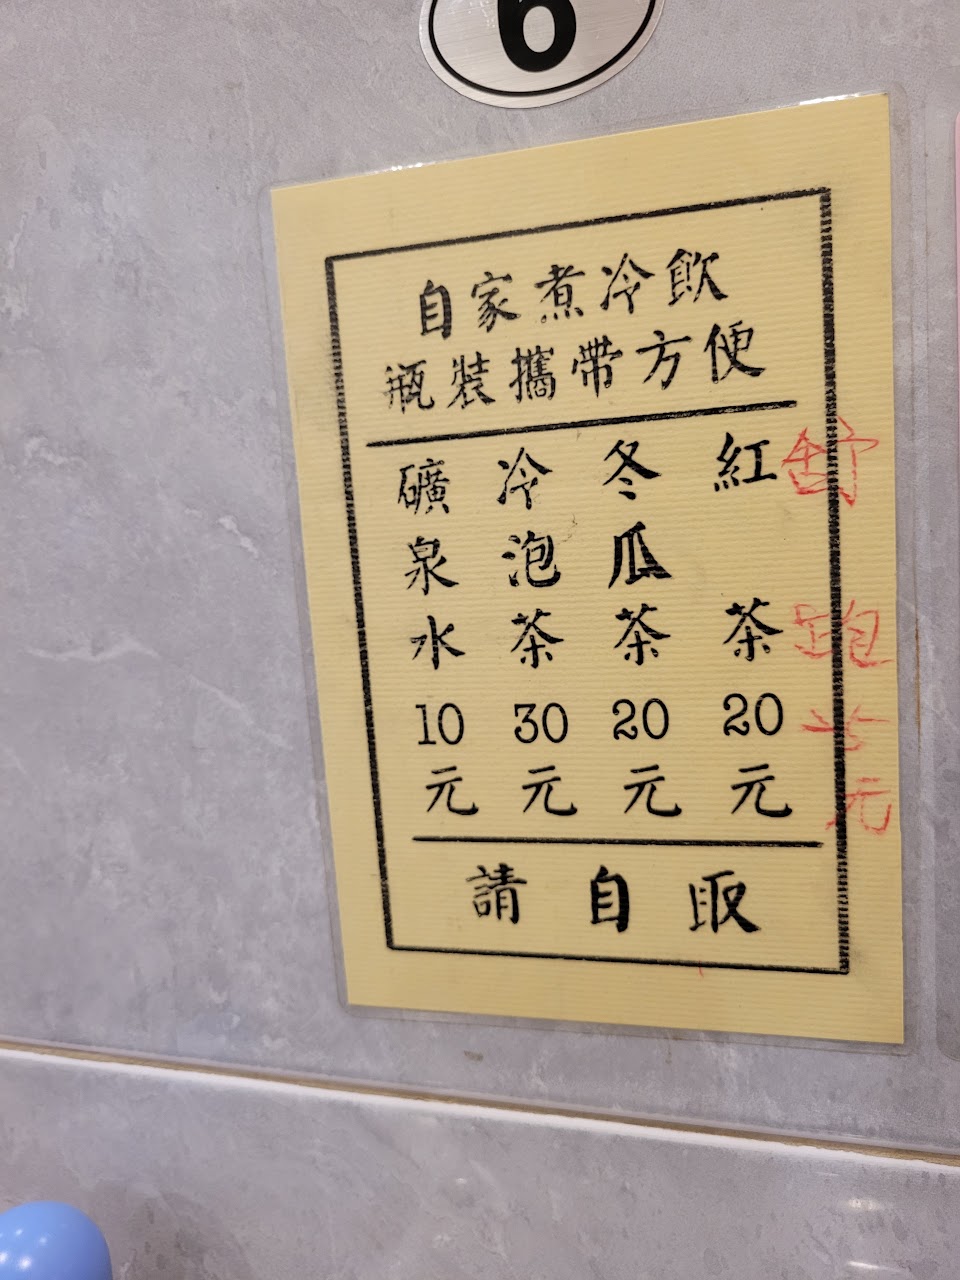 6
自家煮冷飲
瓶裝攜帶方便
舒跑 元
紅茶20元
冬瓜茶20元
冷泡茶30元
礦泉水10元
請自取